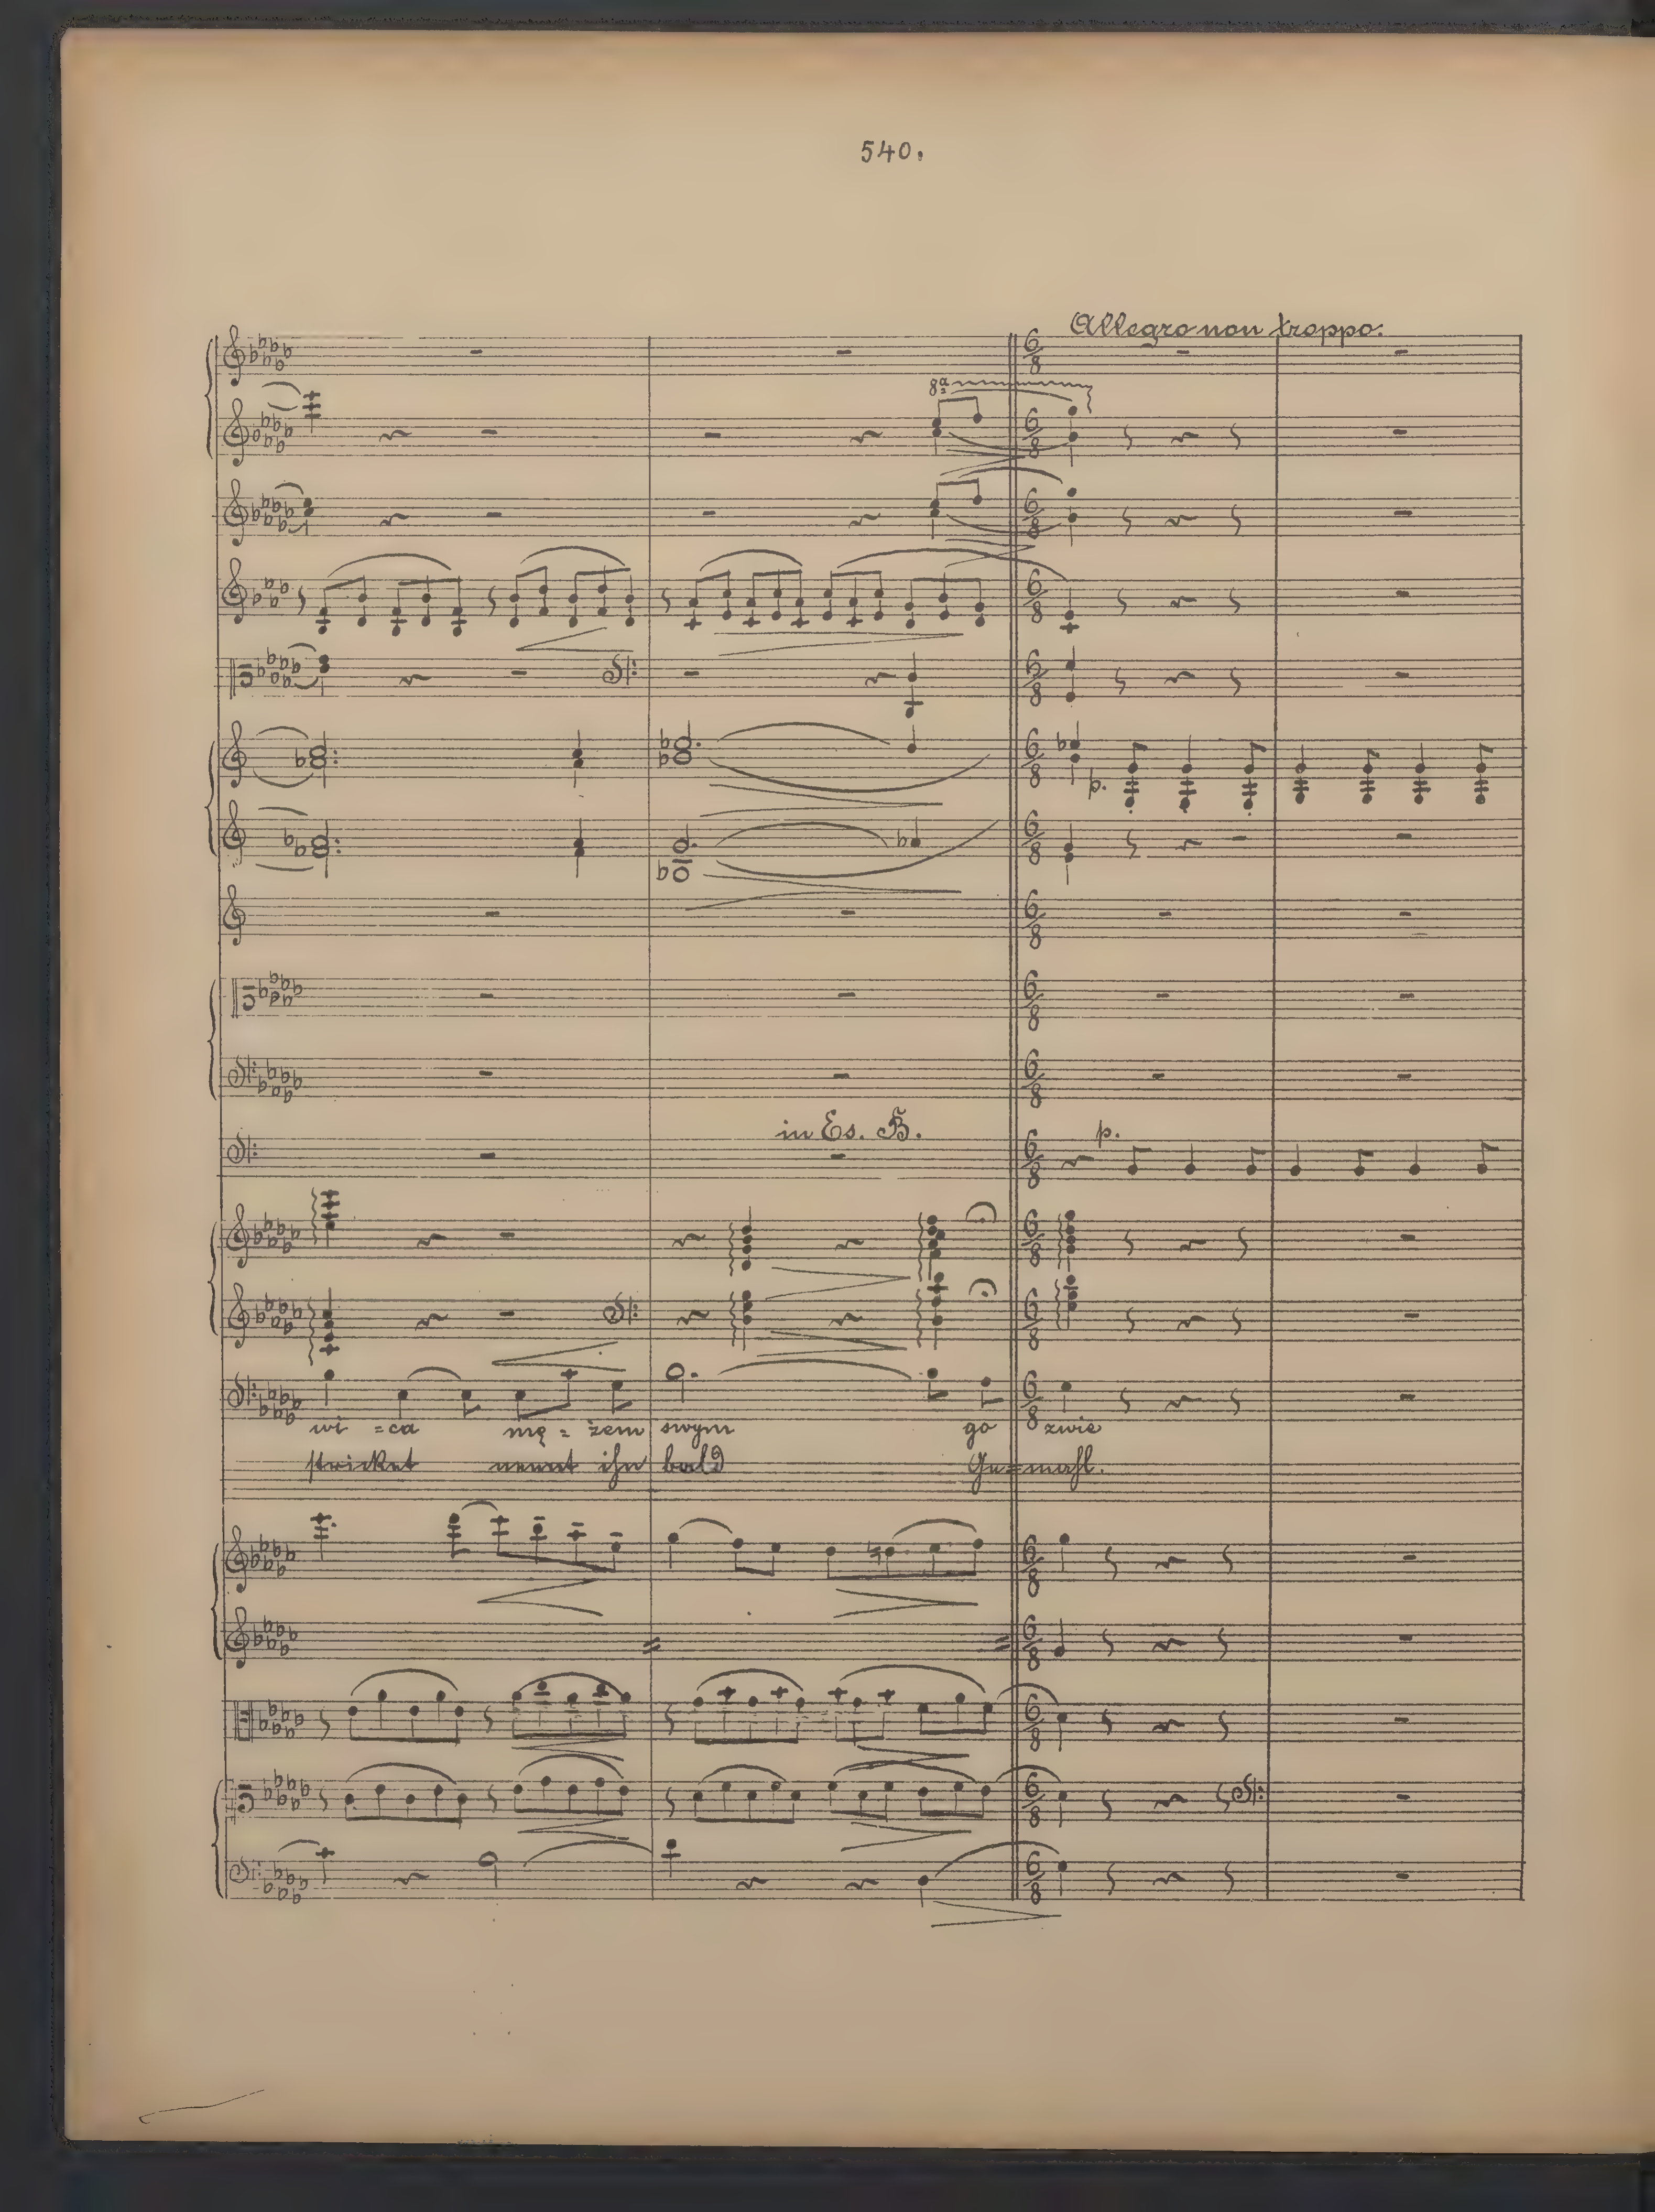 540.
Allegro non troppo.
8ª
p.
in Es. B.
p.
wi =ca mę = żem swym go zwie
stricket nennt ihn bald Ge=mahl.